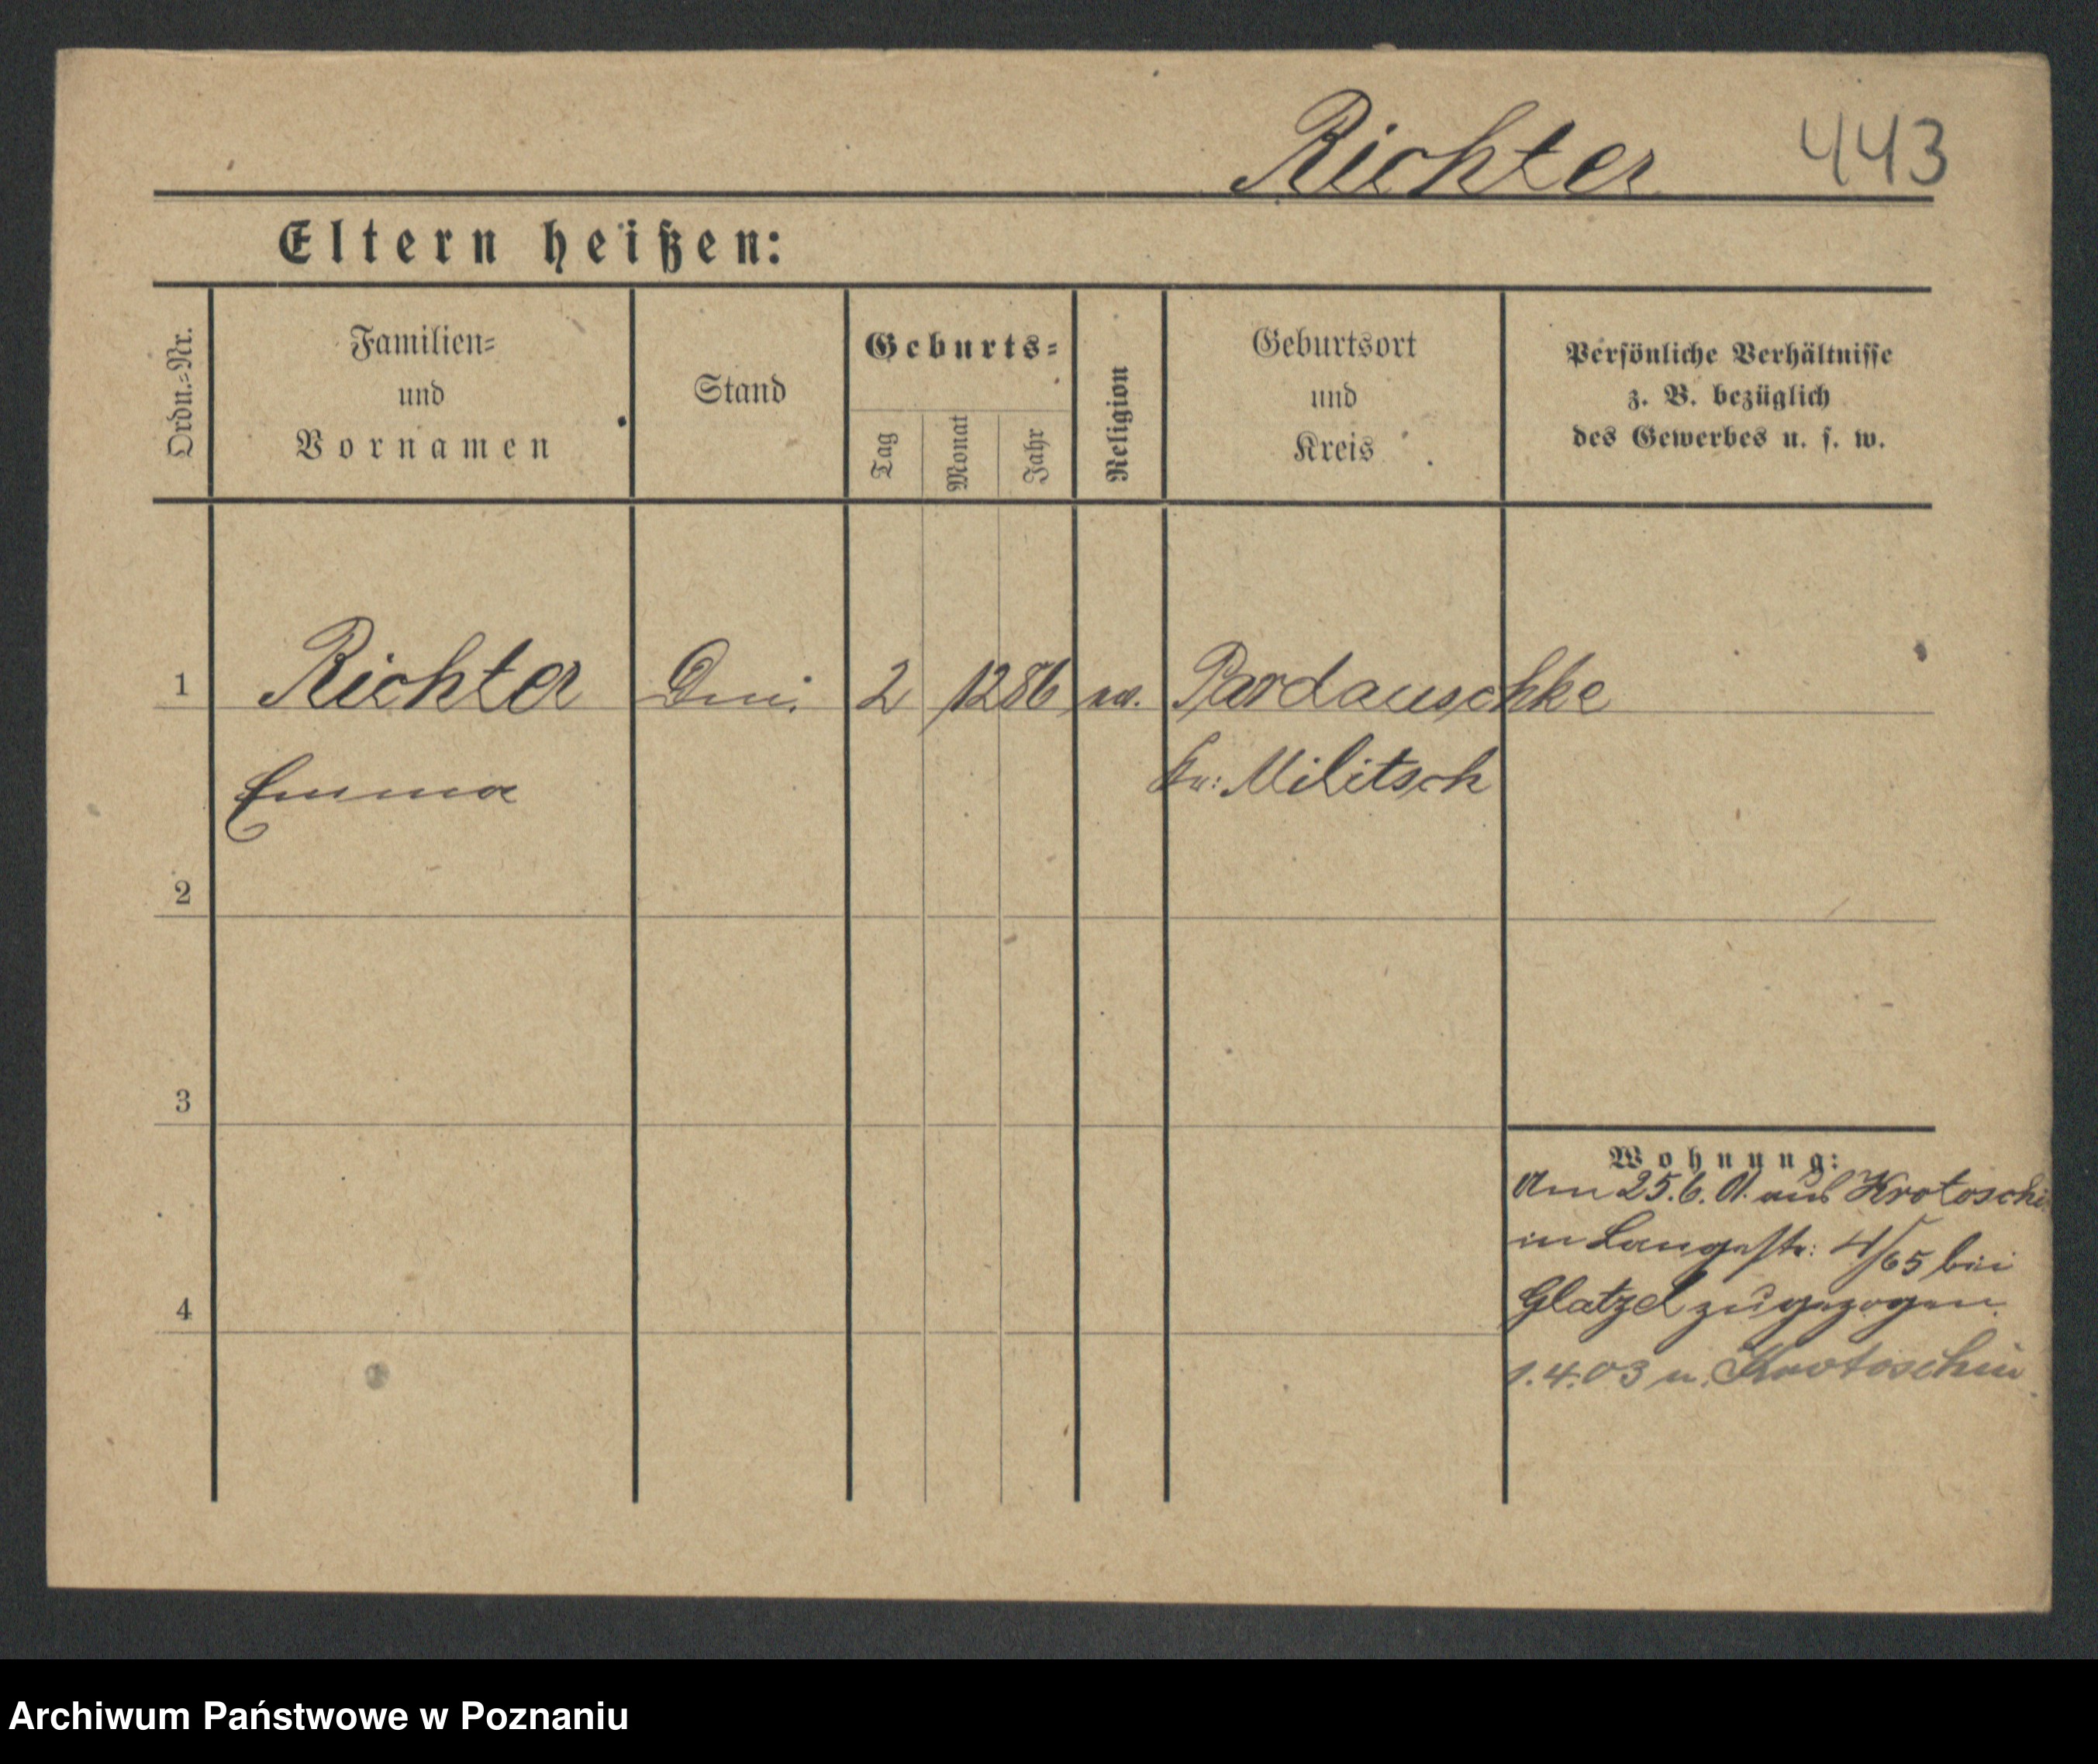 Richter 443
Eltern heißen:
Ordn.=Nr.
Familien=
und
Vornamen
Stand
Geburts=
Tag
Monat
Jahr
Religion
Geburtsort
und
Kreis
Persönliche Verhältnisse
z. B. bezüglich
des Gewerbes u. s. w.
1 Richter 2 12 86 ev. Pardauschke
Emma Kr: Militsch
2
3
4
Wohnung:
Am 25.6.01. aus Krotoschi
in Langestr: 4/65 bei
Glatzel zugezogen.
1.4.03 n. Krotoschin
Archiwum Państwowe w Poznaniu